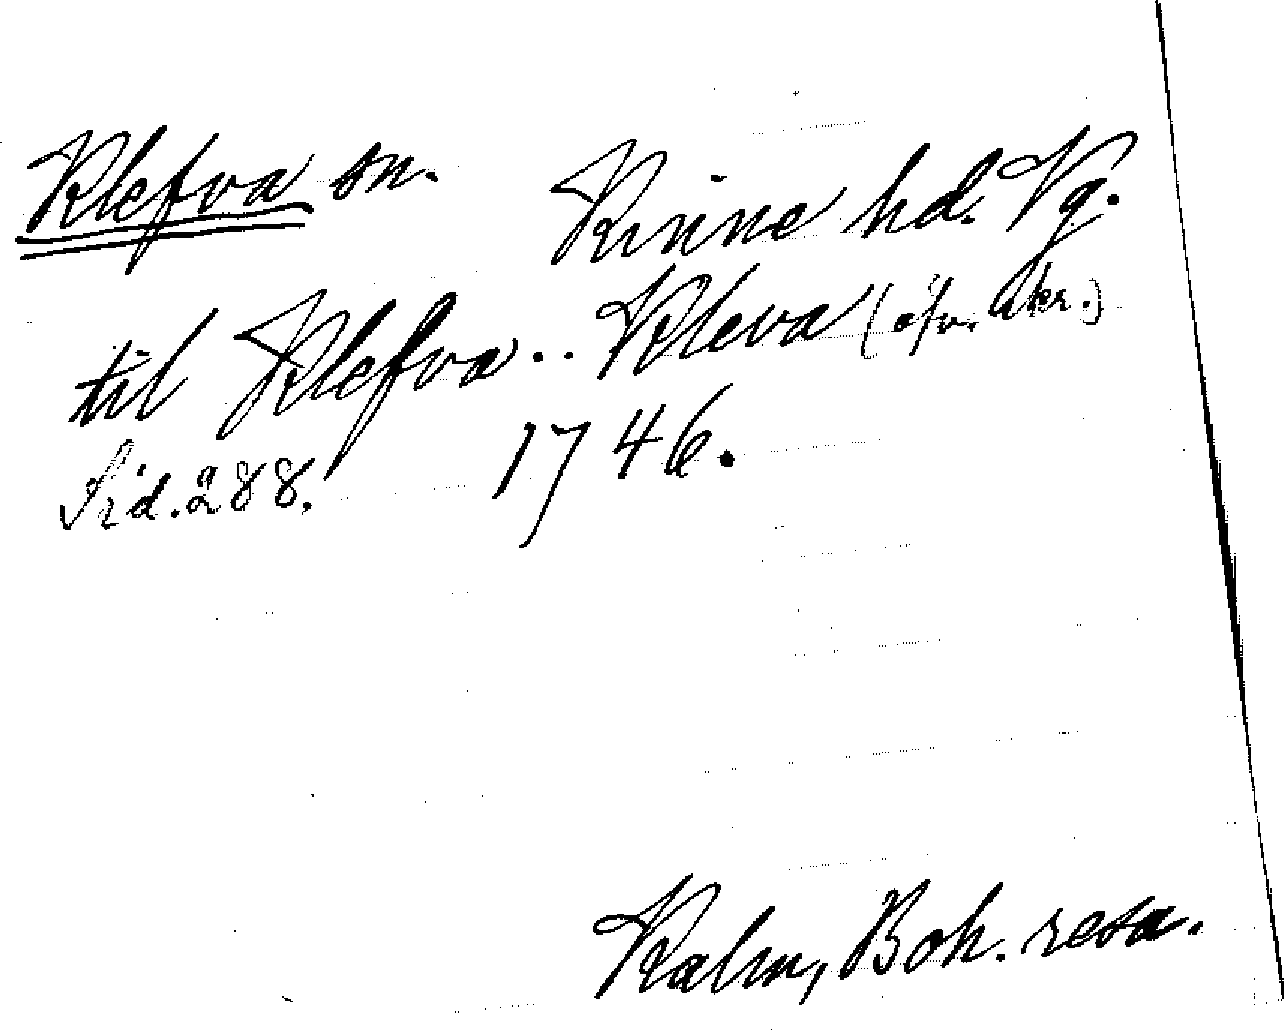 Klefva sn. Kinne hd. Vg.
til Klefva.. Kleva (öfv. skr.)
Sid. 288. 1746.
Kalm, Boh. resa.